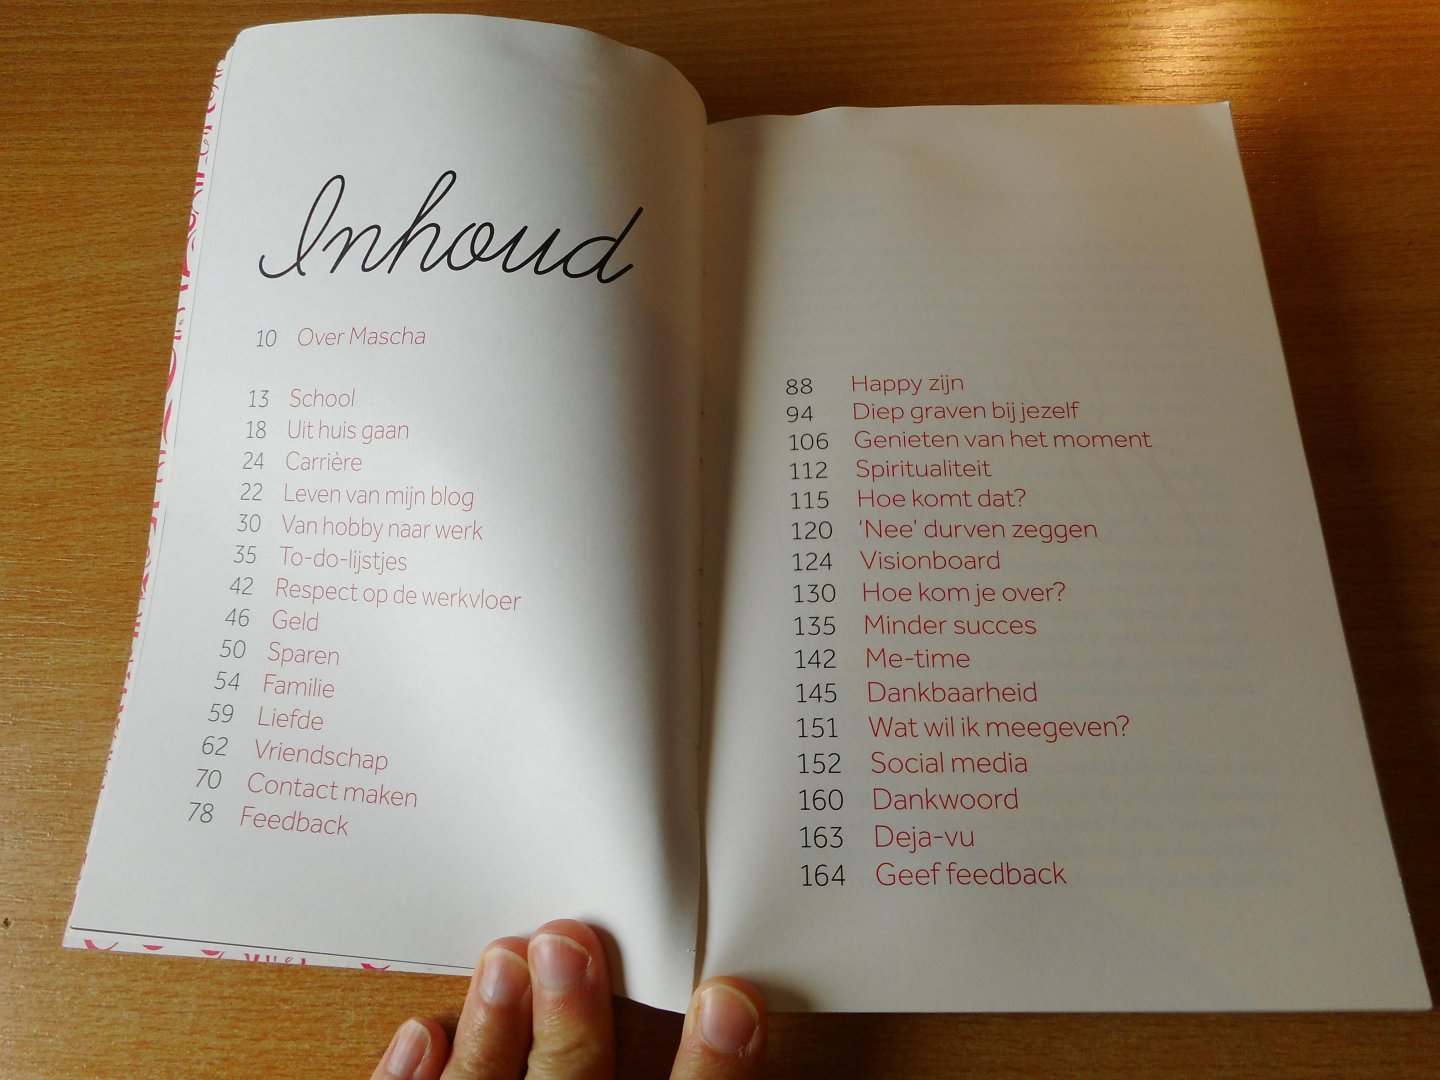 Inhoud
10 Over Mascha
13 School
18 Uit huis gaan
24 Carrière
22 Leven van mijn blog
30 Van hobby naar werk
35 To-do-lijstjes
42 Respect op de werkvloer
46 Geld
50 Sparen
54 Familie
59 Liefde
62 Vriendschap
70 Contact maken
78 Feedback
88 Happy zijn
94 Diep graven bij jezelf
106 Genieten van het moment
112 Spiritualiteit
115 Hoe komt dat?
120 ‘Nee’ durven zeggen
124 Visionboard
130 Hoe kom je over?
135 Minder succes
142 Me-time
145 Dankbaarheid
151 Wat wil ik meegeven?
152 Social media
160 Dankwoord
163 Deja-vu
164 Geef feedback